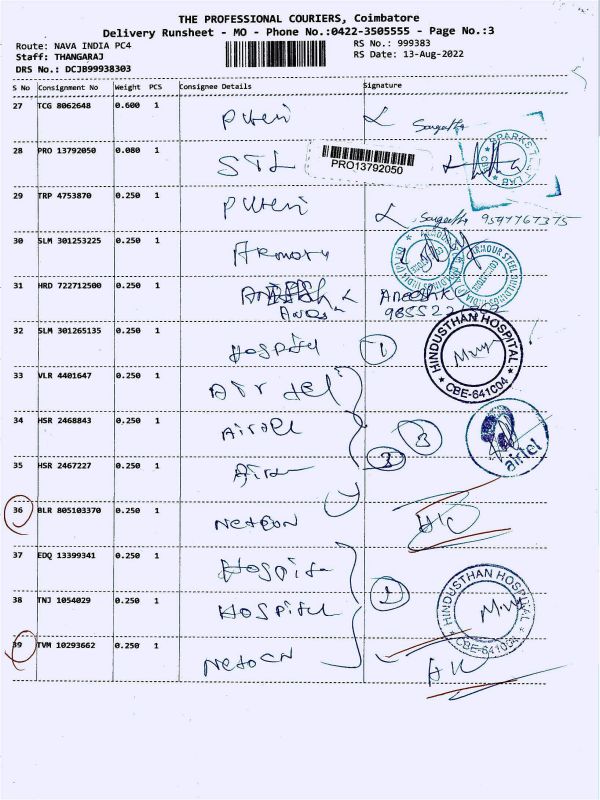 THE PROFESSIONAL COURIERS, Coimbatore
Delivery Runsheet - MO - Phone No.:0422-3505555 - Page No.:3
Route: NAVA INDIA PC4 RS No.: 999383
Staff: THANGARAJ RS Date: 13-Aug-2022
DRS No.: DCJB99938303
S No Consignment No Weight PCS Consignee Details Signature
27 TCG 8062648 0.600 1
28 PRO 13792050 0.080 1 STL
PRO13792050
29 TRP 4753870 0.250 1 9597767375
30 SLM 301253225 0.250 1
31 HRD 722712500 0.250 1 Aneesh
32 SLM 301265135 0.250 1 Hospital 1
HINDUSTHAN HOSPITAL
CBE-641004
33 VLR 4401647 0.250 1 Airtel
34 HSR 2468843 0.250 1 Airtel 3
airtel
35 HSR 2467227 0.250 1 3
36 BLR 805103370 0.250 1 Netcon
37 EDQ 13399341 0.250 1 Hospital
38 TNJ 1054029 0.250 1 Hospital 2
HINDUSTHAN HOSPITAL
CBE-641004
39 TVM 10293662 0.250 1